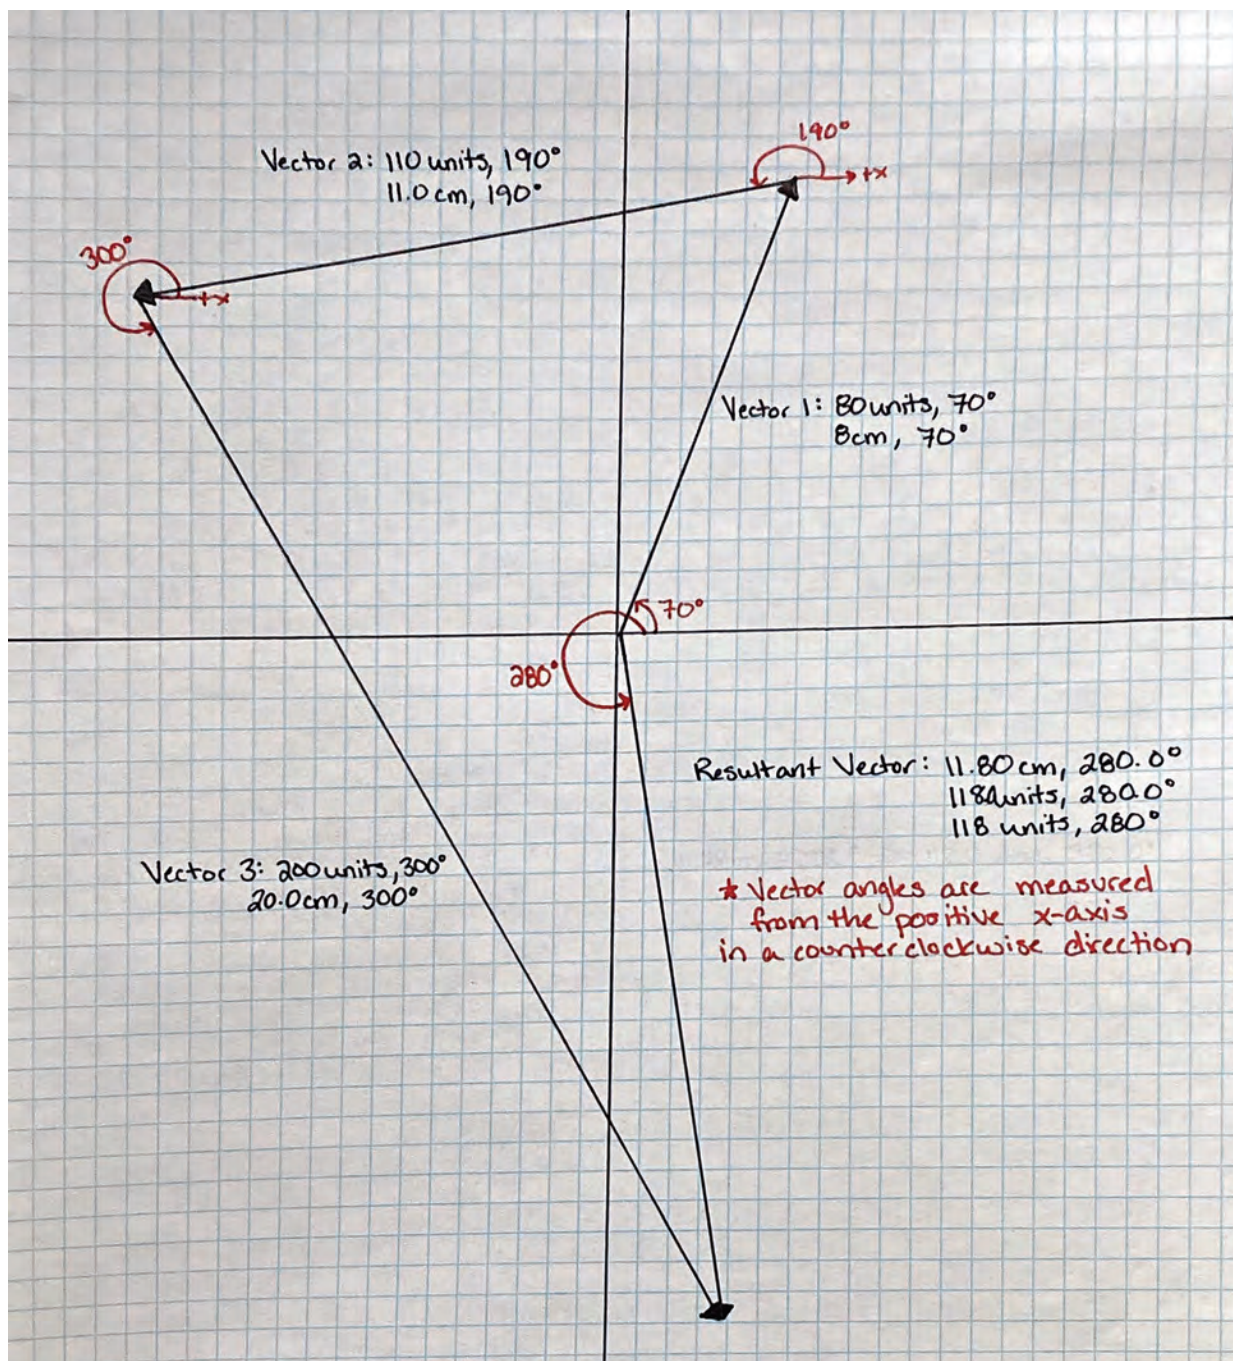 190°
+x
Vector 2: 110 units, 190°
11.0 cm, 190°
300°
+x
Vector 1: 80 units, 70°
8cm, 70°
70°
280°
Resultant Vector: 11.80 cm, 280.0°
118units, 280.0°
118 units, 280°
Vector 3: 200 units, 300°
20.0cm, 300°
* Vector angles are measured
from the positive x-axis
in a counterclockwise direction